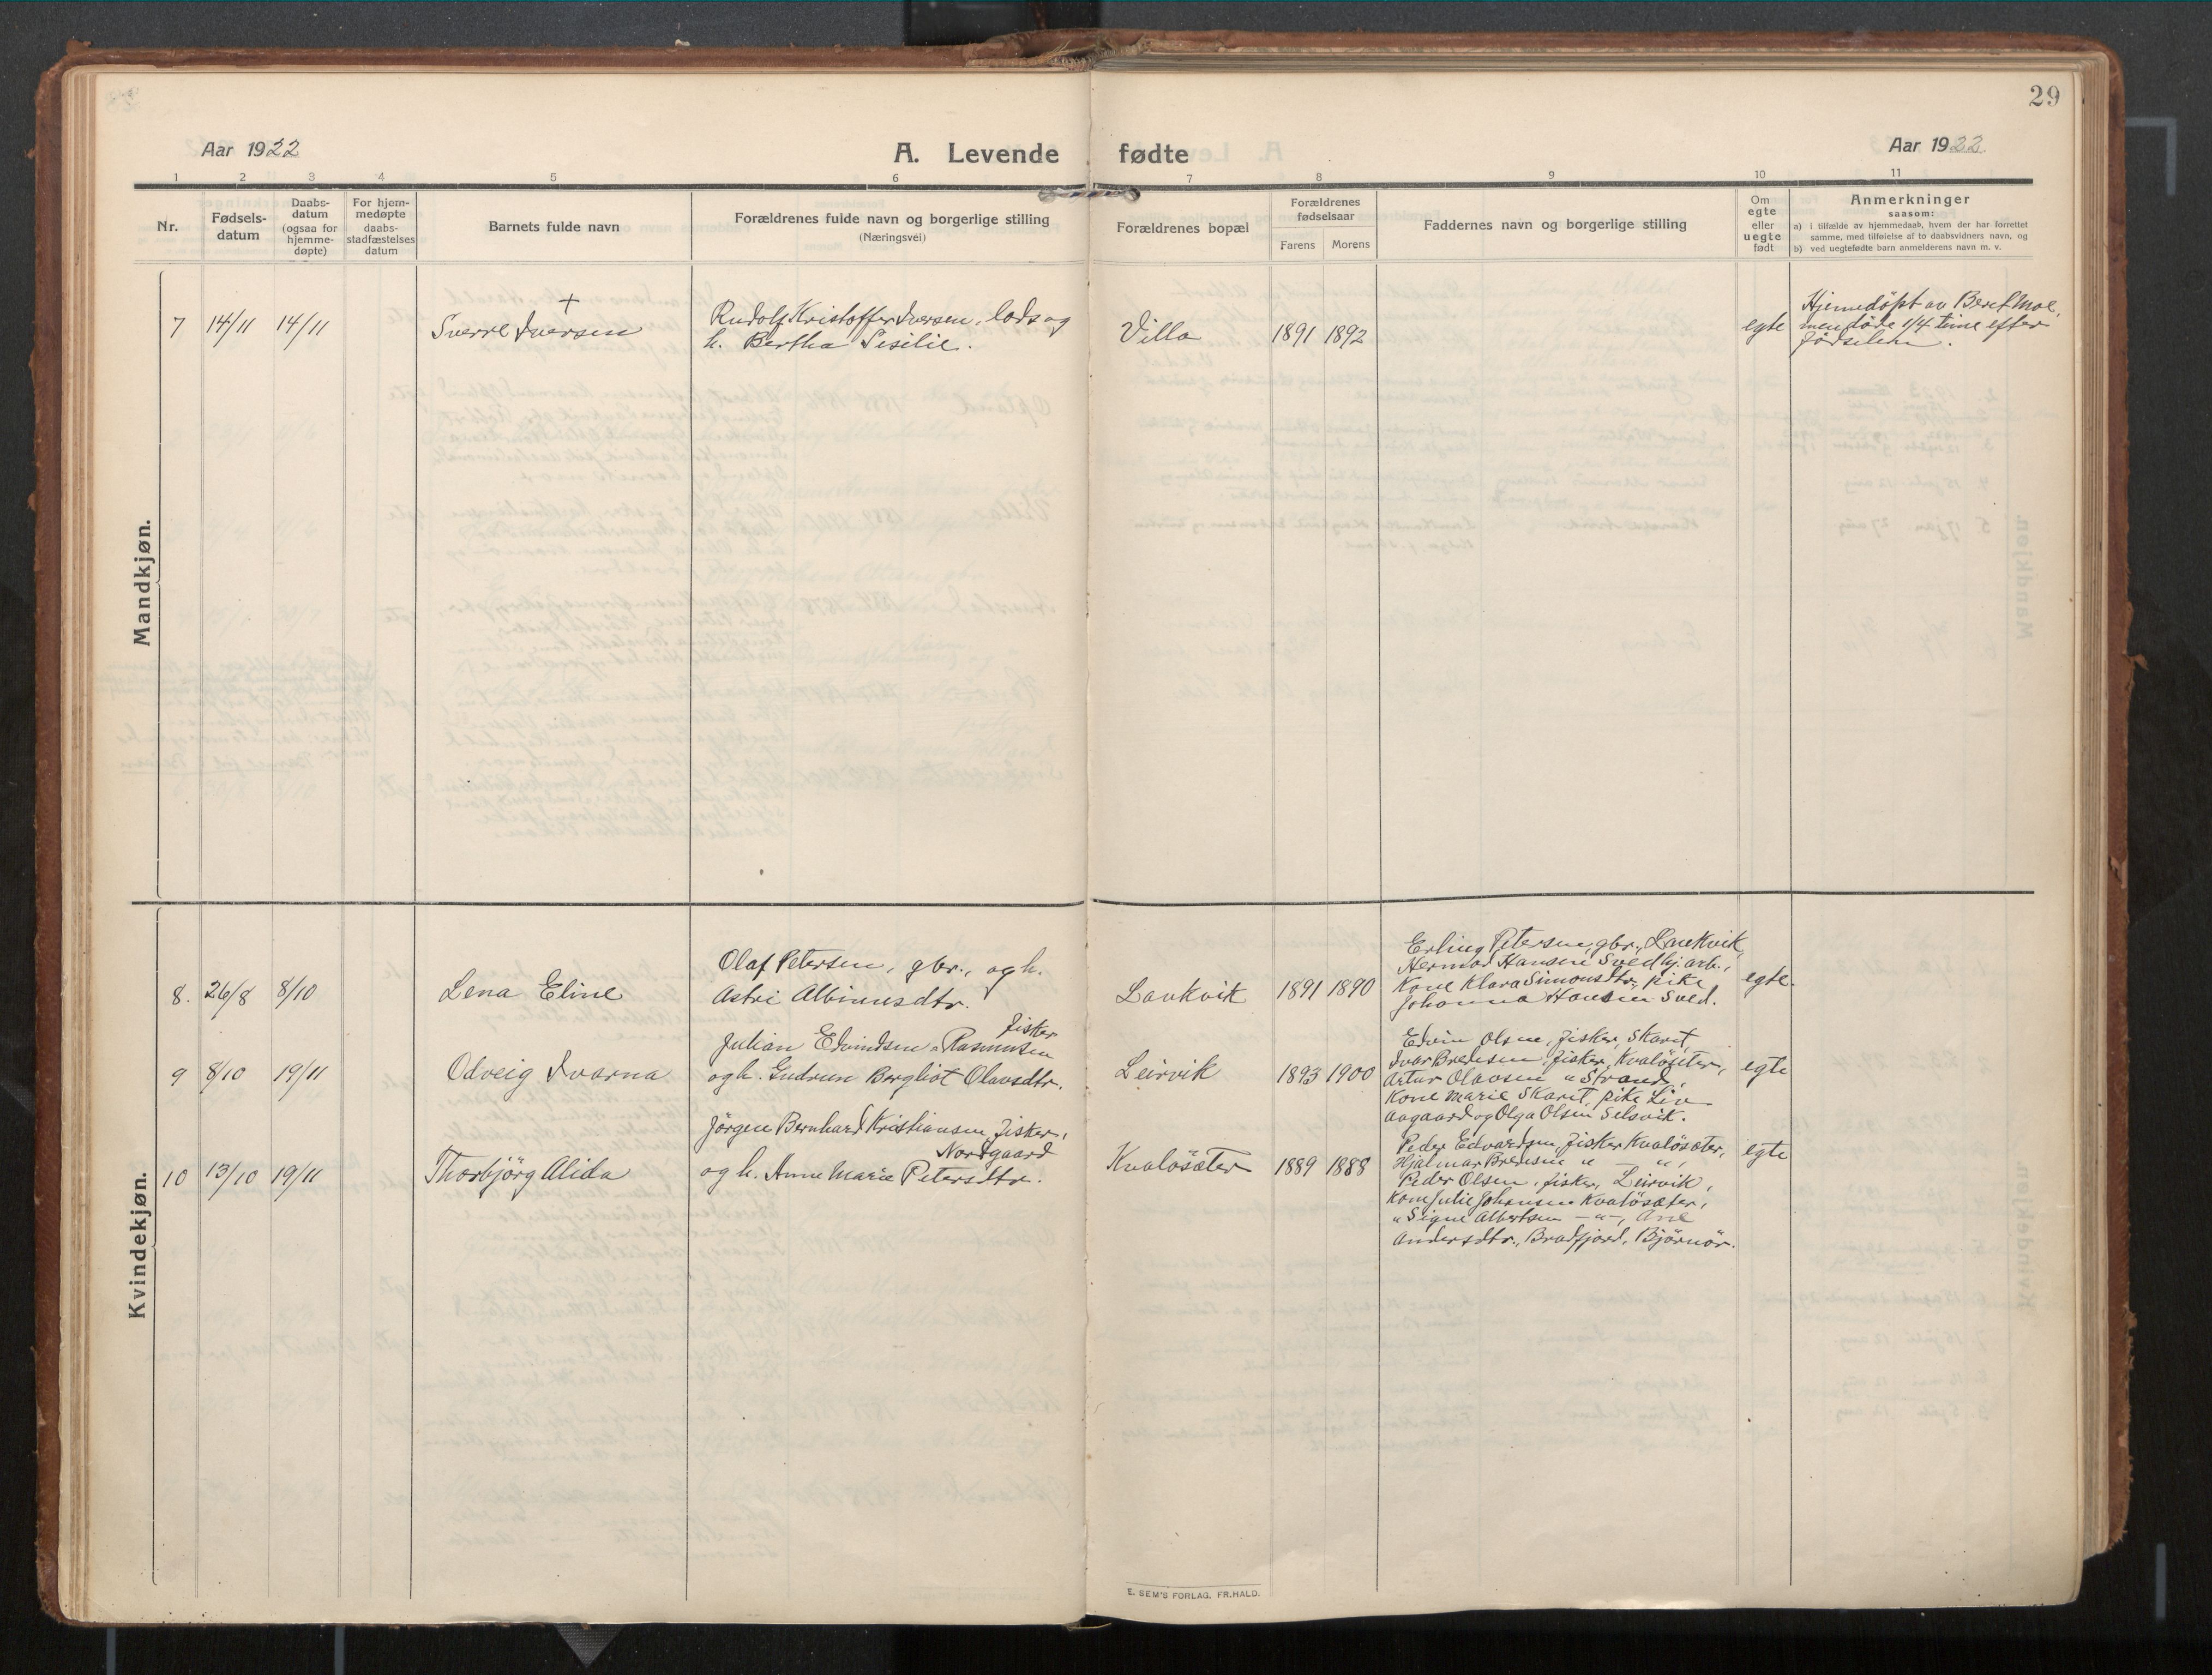 29
Aar 1922
A. Levende fødte
Aar 1922.
1 2 3 4 5 6 7 8 9 10 11
Nr.
Fødsels-
datum
Daabs-
datum
(ogsaa for
hjemme-
døpte)
For hjem-
medøpte
daabs-
stadfæstelses
datum
Barnets fulde navn
Forældrenes fulde navn og borgerlige stilling
(Næringsvei)
Forældrenes bopæl
Forældrenes
fødselsaar
Farens Morens
Faddernes navn og borgerlige stilling
Om
egte
eller
uegte
født
Anmerkninger
saasom:
a) i tilfælde av hjemmedaab, hvem der har forrettet
samme, med tilføielse af to daabsvidners navn, og
b) ved uegtefødte barn anmelderens navn m. v.
Mandkjøn.
7 14/11 14/11
+
Sverre Iversen
Rudolf Kristoffer Iversen, lods og
h. Bertha Sesilie.
Villa
1891 1892
egte
Hjemedöpt av Beret Moe,
men döde 1/4 time efter
födselen.
Kvindekjøn.
8. 26/8 8/10
Lena Eline
Olaf Petersen, gbr., og h.
Astri Albinusdtr.
Laukvik
1891 1890
Erling Petersen, gbr., Laukvik,
Hermod Hansen Sved hj. arb.,
Kone Klara Simonsdtr, pike
Johanna Hansen Sved.
egte.
9 8/10 19/11
Odveig Ivarna
fisker
Julian Edvindsen Rasmussen
og h. Gudrun Bergliot Olausdtr.
Leirvik
1893 1900
Edvin Olsen, fisker, Skaret,
Ivar Bredesen fisker, Kvalösæter,
Artur Olavsen " Strand,
Kone Marie Skaret, pike Liv
Aagaard og Olga Olsen Selsvik.
egte
10 13/10 19/11
Thorbjörg Alida
Jörgen Bernhard Kristiansen, fisker,
Nordgaard
og h. Anne Marie Petersdtr.
Kvalösæter
1889 1888
Peder Edvardsen, fisker Kvalösæter,
Hjalmar Bredesen " — ",
Peder Olsen, fisker, Leirvik,
Kone Julie Johansen Kvalösæter,
" Signe Albertsen —"—, Ane
Andersdtr., Bradfjord, Björnör.
egte
E. SEM'S FORLAG, FR.HALD.